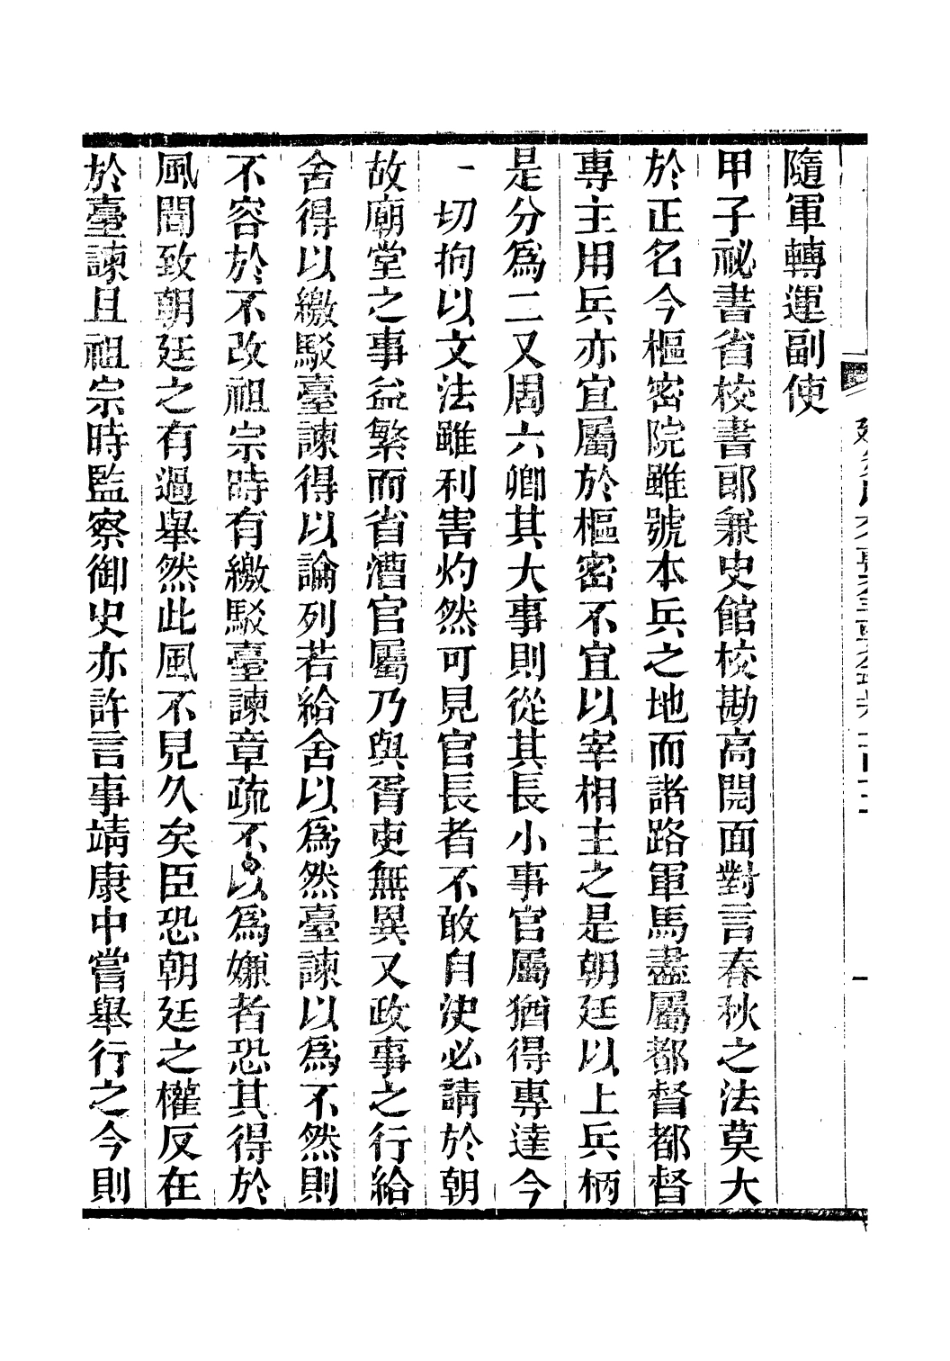 隨軍轉運副使
甲子祕書省校書郎兼史館校勘高閌面對言春秋之法莫大
於正名今樞密院雖號本兵之地而諸路軍馬盡屬都督都督
專主用兵亦宜屬於樞密不宜以宰相主之是朝廷以上兵柄
是分爲二又周六卿其大事則從其長小事官屬猶得專達今
一切拘以文法雖利害灼然可見官長者不敢自決必請於朝
故廟堂之事益繁而省漕官屬乃與胥吏無異又政事之行給
舍得以繳駁臺諫得以論列若給舍以爲然臺諫以爲不然則
不容於不改祖宗時有繳駁臺諫章疏不以爲嫌者恐其得於
風聞致朝廷之有過舉然此風不見久矣臣恐朝廷之權反在
於臺諫且祖宗時監察御史亦許言事靖康中嘗舉行之今則